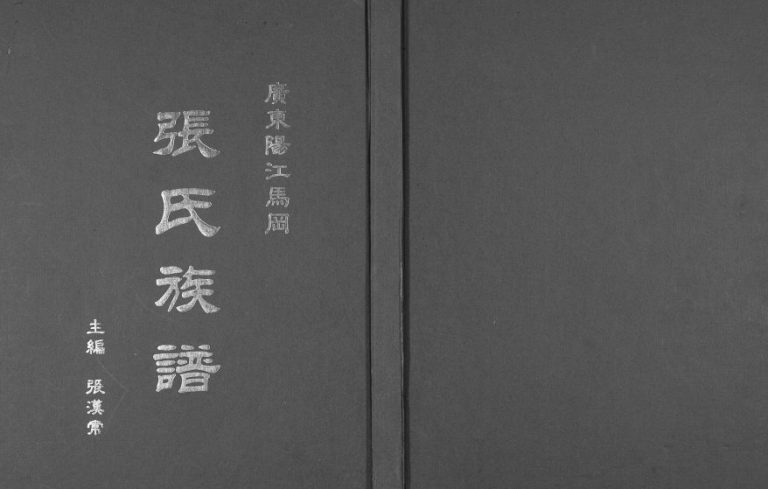 廣東陽江馬岡
張氏族譜
主編 張漢常